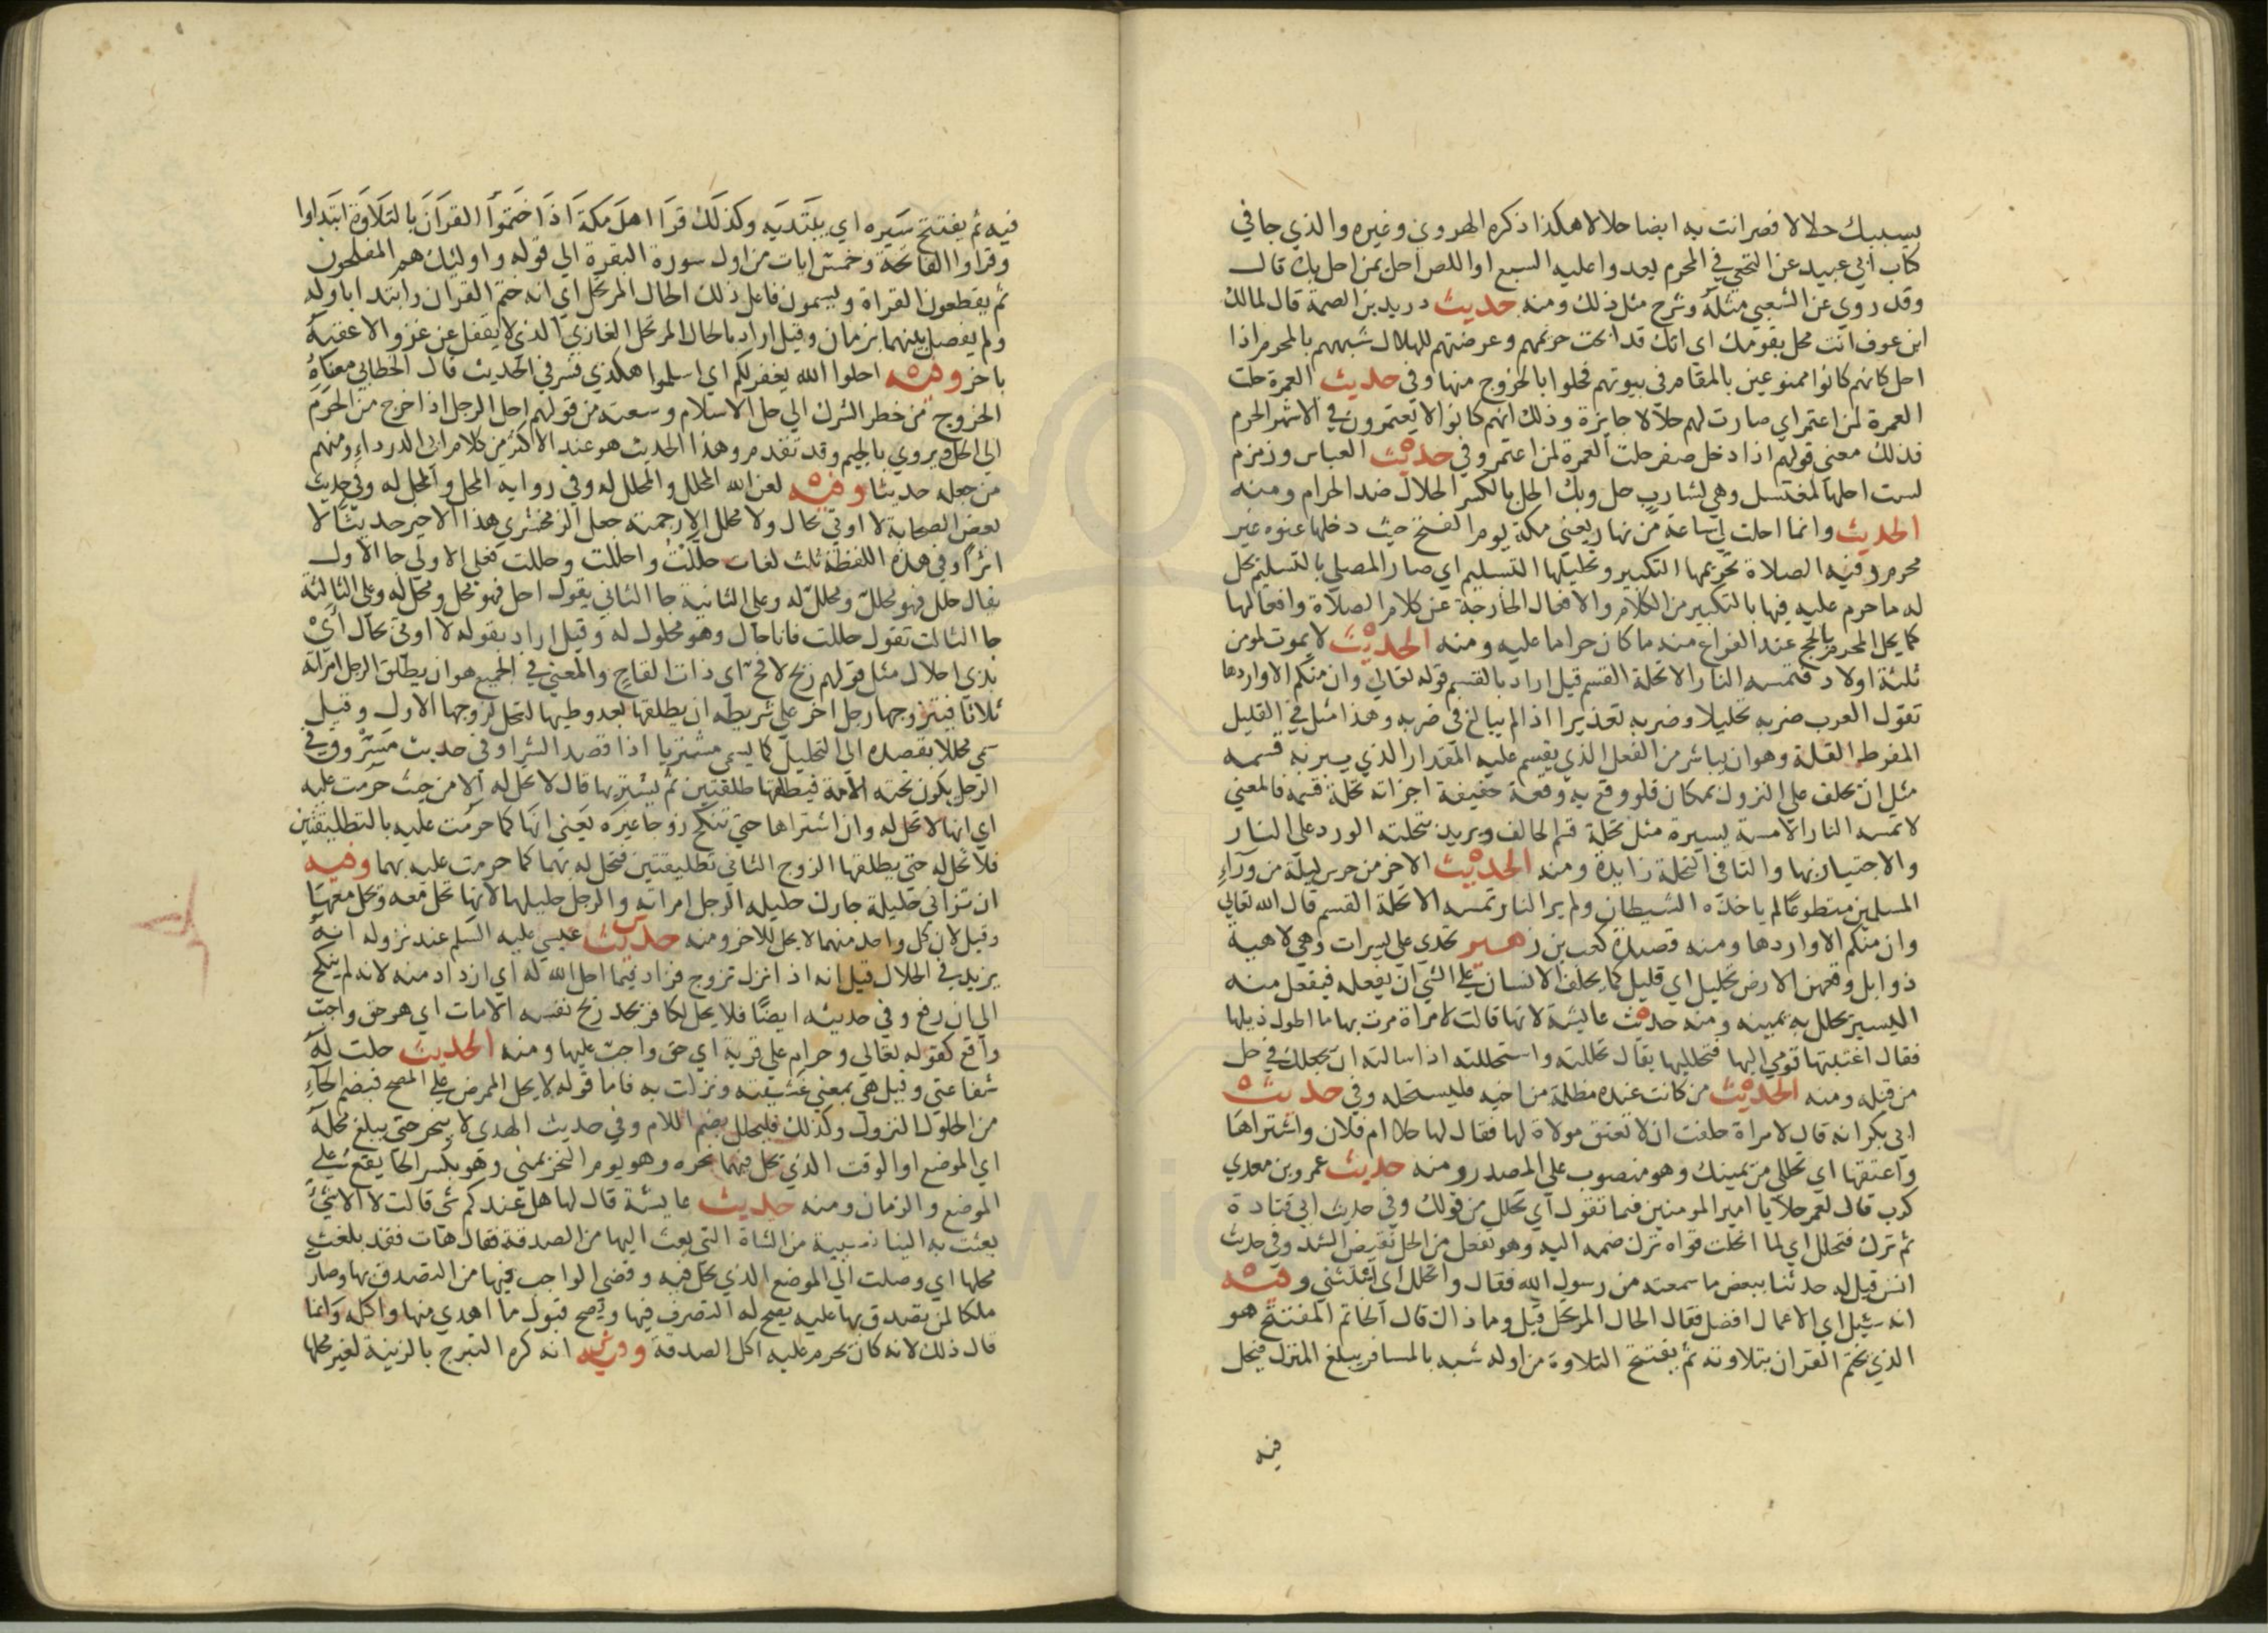 بسببك حلالا فصر انت به ايضا حلالا هكذا ذكره الهروي وغيره والذي جا في
كتاب ابي عبيد عن النخعي في المحرم يعدوا عليه السبع او اللص احل بمن احل بك قال
وقد روي عن الشعبي مثله وشرح مثل ذلك ومنه حديث دريد بن الصمة قال لمالك
ابن عوف انت محل بقومك اي انك قد ابحت حريمهم وعرضتهم للهلال شبههم بالمحرم اذا
احل كانهم كانوا ممنوعين بالمقام في بيوتهم فحلوا بالخروج منها وفي حديث العمرة حلت
العمرة لمن اعتمر اي صارت لهم حلالا جايزة وذلك انهم كانوا لا يعتمرون في الاشهر الحرم
فذلك معني قولهم اذا دخل صفر حلت العمرة لمن اعتمر وفي حديث العباس وزمزم
لست احلها لمغتسل وهي لشارب حل وبل الحل بالكسر الحلال ضد الحرام ومنه
الحديث وانما احلت لي ساعة من نهار يعني مكة يوم الفتح حيث دخلها عنوه غير
محرم وفيه الصلاة تحريمها التكبير وتحليلها التسليم اي صار المصلي بالتسليم يحل
له ما حرم عليه فيها بالتكبير من الكلام والافعال الخارجة عن كلام الصلاة وافعالها
كما يحل المحرم بالحج عند الفراغ منه ما كان حراما عليه ومنه الحديث لا يموت لمومن
ثلثة اولاد فتمسه النار الا تحلة القسم قيل اراد بالقسم قوله تعالي وان منكم الا واردها
تقول العرب ضربه تحليلا وضربه تعذيرا اذا لم يبالغ في ضربه وهذا مثل في القليل
المفرط القلة وهو ان يباشر من الفعل الذي يقسم عليه المقدار الذي يبر به قسمه
مثل ان يحلف علي النزول بمكان فلو وقع به وقعة خفيفة اجزاته تحلة قسمه فالمعني
لا تمسه النار الا مسة يسيرة مثل تحلة قسم الحالف ويريد بتحلته الورد علي النار
والاجتياز بها والتا في التحلة زايدة ومنه الحديث الاخر من حرس ليلة من وراء
المسلمين متطوعا لم ياخذه الشيطان ولم ير النار تمسه الا تحلة القسم قال الله تعالي
وان منكم الا واردها ومنه قصيدة كعب بن زهير تخدي علي يسرات وهي لاهية
ذوابل وقعهن الارض تحليل اي قليل كما يحلف الانسان علي الشي ان يفعله فيفعل منه
اليسير يحلل به يمينه ومنه حديث عايشة لانها قالت لامراة مرت بها ما اطول ذيلها
فقال اغتبتها قومي اليها فتحلليها يقال تحللته واستحللته اذا سالته ان يجعلك في حل
من قبله ومنه الحديث من كانت عنده مظلمة من اخيه فليستحله وفي حديث
ابي بكر انه قال لامراة حلفت ان لا تعتق مولاة لها فقال لها حلا ام فلان واشتراها
واعتقها اي تحللي من يمينك وهو منصوب علي المصدر ومنه حديث عمرو بن معدي
كرب قال لعمر حلا يا امير المومنين فيما تقول اي تحلل من قولك وفي حديث ابي قتادة
ثم ترك فتحلل اي لما انحلت قواه ترك ضمه اليه وهو تفعل من الحل نقيض الشد وفي حديث
انس قيل له حدثنا ببعض ما سمعته من رسول الله فقال واتحلل اي استثني وفيه
انه سئل اي الاعمال افضل فقال الحال المرتحل قيل وما ذاك قال الخاتم المفتتح هو
الذي يختم القران بتلاوته ثم يفتتح التلاوة من اوله شبه بالمسافر يبلغ المنزل فيحل
فيه
فيه ثم يفتتح سيره اي يبتديه وكذلك قرا اهل مكة اذا ختموا القران بالتلاوة ابتداوا
وقراوا الفاتحة وخمس ايات من اول سورة البقرة الي قوله واولئك هم المفلحون
ثم يقطعون القراة ويسمون فاعل ذلك الحال المرتحل اي انه ختم القران وابتدا باوله
ولم يفصل بينهما بزمان وقيل اراد بالحال المرتحل الغازي الذي لا يقفل عن غزو الا عقبه
باخر وفيه احلوا الله يغفر لكم اي اسلموا هكذي فسر في الحديث قال الخطابي معناه
الخروج من خطر الشرك الي حل الاسلام وسعته من قولهم احل الرجل اذا خرج من الحرم
الي الحل ويروي بالجيم وقد تقدم وهذا الحديث هو عند الاكثر من كلام ابي الدرداء ومنهم
من جعله حديثا وفيه لعن الله المحلل والمحلل له وفي رواية المحل والمحل له وفي حديث
بعض الصحابة لا اوتي بحال ولا محلل الا رجمته جعل الزمخشري هذا الاخير حديثا لا
اثرا وفي هذه اللفظة ثلث لغات حللت واحللت وحللت فعلي الاولي جا الاول
يقال حلل فهو محلل ومحلل له وعلي الثانية جا الثاني يقول احل فهو محل ومحل له وعلي الثالثة
جا الثالث تقول حللت فانا حال وهو محلول له وقيل اراد بقوله لا اوتي بحال اي
بذي احلال مثل قولهم ريح لاقح اي ذات القاح والمعني في الجميع هو ان يطلق الرجل امراته
ثلاثا فيتزوجها رجل اخر علي شريطة ان يطلقها بعد وطيها لتحل لزوجها الاول وقيل
سمي محللا بقصده الي التحليل كما يسمي مشتريا اذا قصد الشرا وفي حديث مسروق في
الرجل يكون تحته الامة فيطلقها طلقتين ثم يشتريها قال لا تحل له الا من حيث حرمت عليه
اي انها لا تحل له وان اشتراها حتي تنكح زوجا غيره يعني انها كما حرمت عليه بالتطليقتين
فلا تحل له حتي يطلقها الزوج الثاني تطليقتين فتحل له بهما كما حرمت عليه بهما وفيه
ان تزاني حليلة جارك حليلة الرجل امراته والرجل حليلها لانها تحل معه ويحل معها
وقيل لان كل واحد منهما لا يحل للاخر ومنه حديث عيسي عليه السلم عند نزوله انه
يزيد في الحلال قيل انه اذا نزل تزوج فزاد فيما احل الله له اي ازداد منه لانه لم ينكح
الي ان رفع وفي حديثه ايضا فلا يحل لكافر يجد ريح نفسه الا مات اي هو حق واجب
واقع كقوله تعالي وحرام علي قرية اي حق واجب عليها ومنه الحديث حلت له
شفاعتي وقيل هي بمعني غشيته ونزلت به فاما قوله لا يحل الممرض علي المصح فبضم الحاء
من الحلول النزول وكذلك فليحلل بضم اللام وفي حديث الهدي لا ينحر حتي يبلغ محله
اي الموضع او الوقت الذي يحل فيهما نحره وهو يوم النحر بمني وهو بكسر الحا يقع علي
الموضع والزمان ومنه حديث عايشة قال لها هل عندكم شي قالت لا الا شي
بعثت به الينا نسيبة من الشاة التي بعث اليها من الصدقة فقال هات فقد بلغت
محلها اي وصلت الي الموضع الذي تحل فيه وقضي الواجب فيها من التصدق بها وصار
ملكا لمن يصدق بها عليه يصح له التصرف فيها ويصح قبول ما اهدي منها واكله وانما
قال ذلك لانه كان يحرم عليه اكل الصدقة وفيه انه كره التبرج بالزينة لغير محلها